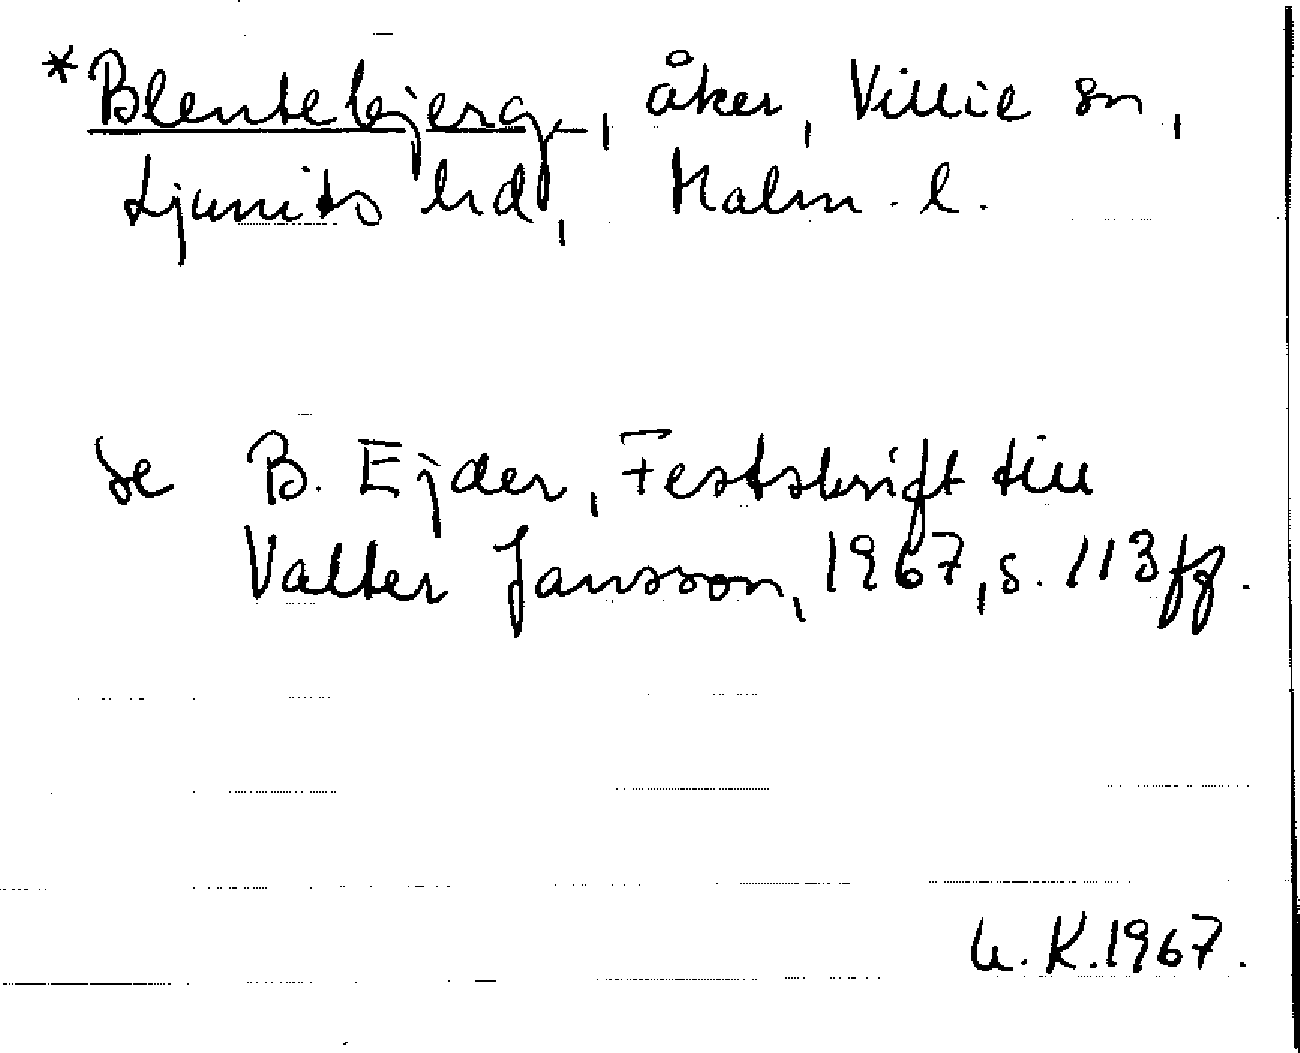 *Blentebjerg, åker, Villie sn,
Ljunits hd, Malm. l.
Se B. Ejder, Festskrift till
Valter Jansson, 1967, s. 113 ff.
U. K. 1967.